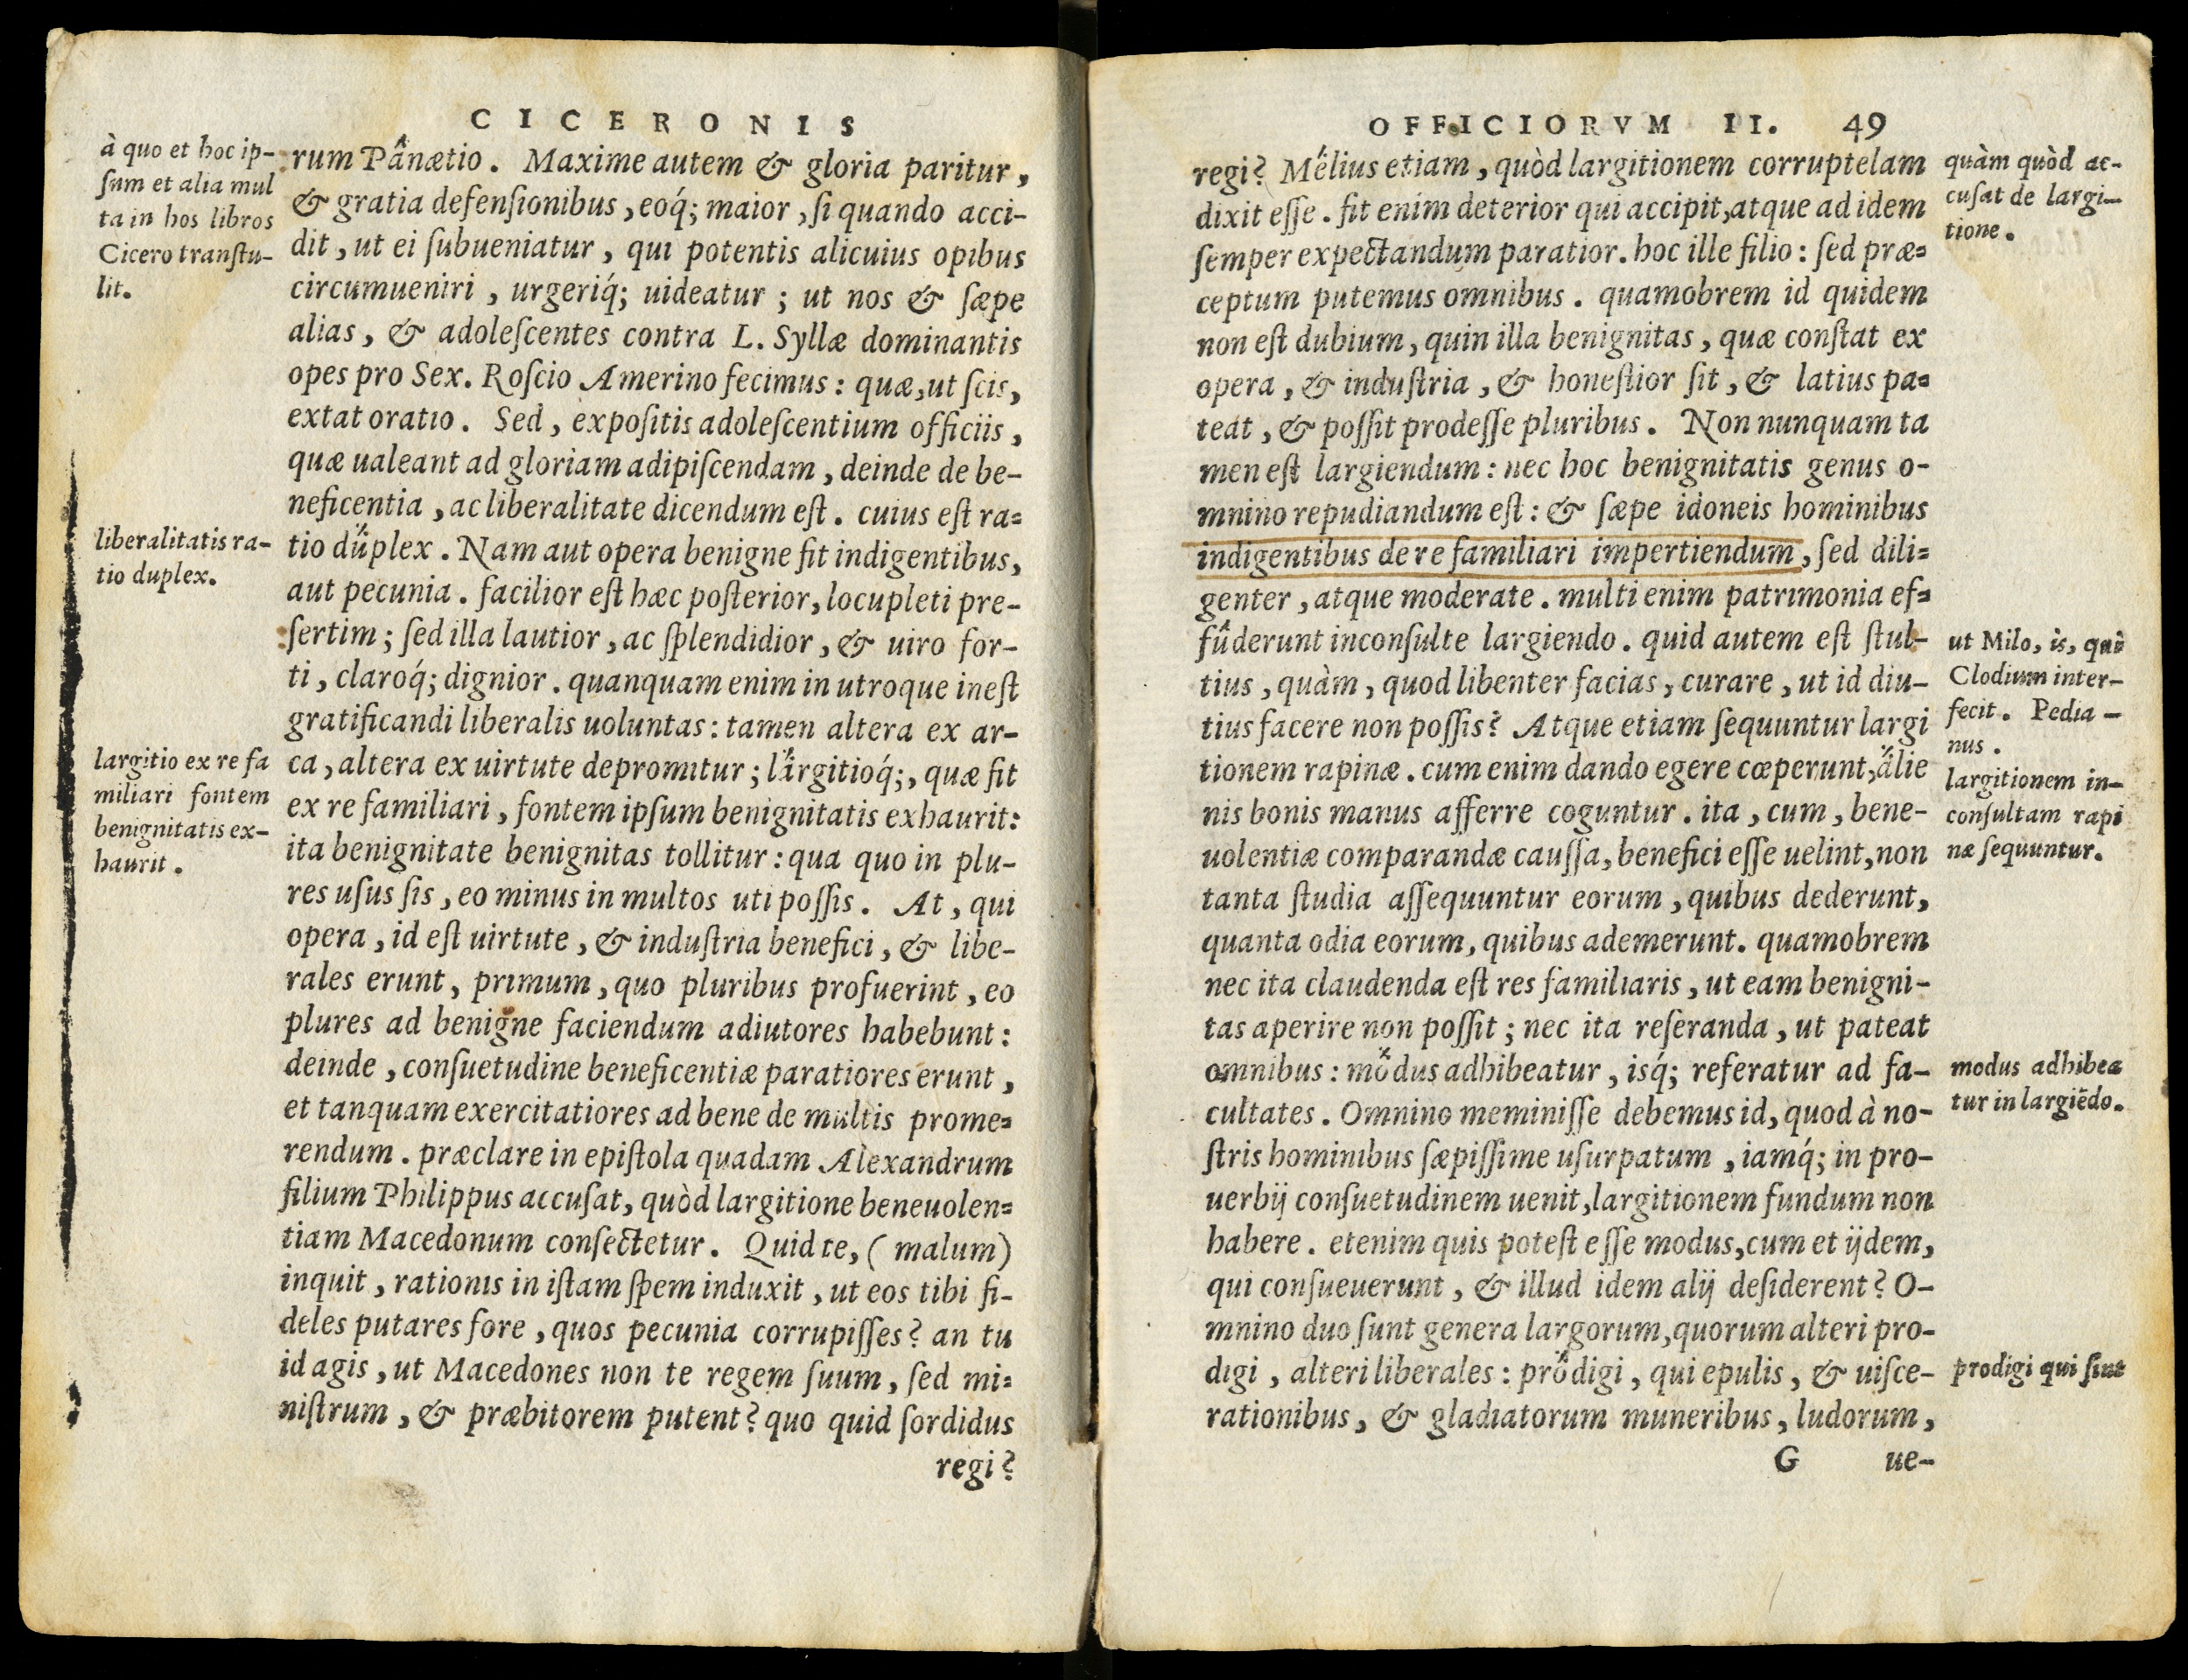 CICERONIS
à quo et hoc ip-
ſum et alia mul
ta in hos libros
Cicero tranſtu-
lit.
rum Panætio. Maxime autem & gloria paritur,
& gratia defenſionibus, eoq́; maior, ſi quando acci-
dit, ut ei ſubueniatur, qui potentis alicuius opibus
circumueniri, urgeriq́; uideatur; ut nos & ſæpe
alias, & adoleſcentes contra L. Syllæ dominantis
opes pro Sex. Roſcio Amerino fecimus: quæ, ut ſcis,
extat oratio. Sed, expoſitis adoleſcentium officiis,
quæ ualeant ad gloriam adipiſcendam, deinde de be-
neficentia, ac liberalitate dicendum eſt. cuius eſt ra-
liberalitatis ra-
tio duplex.
tio duplex. Nam aut opera benigne fit indigentibus,
aut pecunia. facilior eſt hæc poſterior, locupleti pre-
ſertim; ſed illa lautior, ac ſplendidior, & uiro for-
ti, claroq́; dignior. quanquam enim in utroque ineſt
gratificandi liberalis uoluntas: tamen altera ex ar-
largitio ex re fa
miliari fontem
benignitatis ex-
haurit.
ca, altera ex uirtute depromitur; largitioq́;, quæ fit
ex re familiari, fontem ipſum benignitatis exhaurit:
ita benignitate benignitas tollitur: qua quo in plu-
res uſus ſis, eo minus in multos uti poſſis. At, qui
opera, id eſt uirtute, & induſtria benefici, & libe-
rales erunt, primum, quo pluribus profuerint, eo
plures ad benigne faciendum adiutores habebunt:
deinde, conſuetudine beneficentiæ paratiores erunt,
et tanquam exercitatiores ad bene de multis prome-
rendum. præclare in epiſtola quadam Alexandrum
filium Philippus accuſat, quòd largitione beneuolen-
tiam Macedonum conſectetur. Quid te, (malum)
inquit, rationis in iſtam ſpem induxit, ut eos tibi fi-
deles putares fore, quos pecunia corrupiſſes? an tu
id agis, ut Macedones non te regem ſuum, ſed mi-
niſtrum, & præbitorem putent? quo quid ſordidus
regi?
OFFICIORVM II. 49
regi? Melius etiam, quòd largitionem corruptelam
dixit eſſe. fit enim deterior qui accipit, atque ad idem
ſemper expectandum paratior. hoc ille filio: ſed præ-
ceptum putemus omnibus. quamobrem id quidem
non eſt dubium, quin illa benignitas, quæ conſtat ex
opera, & induſtria, & honeſtior ſit, & latius pa-
teat, & poſſit prodeſſe pluribus. Non nunquam ta
men eſt largiendum: nec hoc benignitatis genus o-
mnino repudiandum eſt: & ſæpe idoneis hominibus
indigentibus de re familiari impertiendum, ſed dili-
genter, atque moderate. multi enim patrimonia ef-
fuderunt inconſulte largiendo. quid autem eſt ſtul-
tius, quàm, quod libenter facias, curare, ut id diu-
tius facere non poſſis? Atque etiam ſequuntur largi
tionem rapinæ. cum enim dando egere cœperunt, alie
nis bonis manus afferre coguntur. ita, cum, bene-
uolentiæ comparandæ cauſſa, benefici eſſe uelint, non
tanta ſtudia aſſequuntur eorum, quibus dederunt,
quanta odia eorum, quibus ademerunt. quamobrem
nec ita claudenda eſt res familiaris, ut eam benigni-
tas aperire non poſſit; nec ita reſeranda, ut pateat
omnibus: modus adhibeatur, isq́; referatur ad fa-
cultates. Omnino meminiſſe debemus id, quod à no-
ſtris hominibus ſæpiſſime uſurpatum, iamq́; in pro-
uerbij conſuetudinem uenit, largitionem fundum non
habere. etenim quis poteſt eſſe modus, cum et ijdem,
qui conſueuerunt, & illud idem alij deſiderent? O-
mnino duo ſunt genera largorum, quorum alteri pro-
digi, alteri liberales: prodigi, qui epulis, & uiſce-
rationibus, & gladiatorum muneribus, ludorum,
G ue-
quàm quòd ac-
cuſat de largi-
tione.
ut Milo, is, qui
Clodium inter-
fecit. Pedia-
nus.
largitionem in-
conſultam rapi
næ ſequuntur.
modus adhibea
tur in largiēdo.
prodigi qui ſint